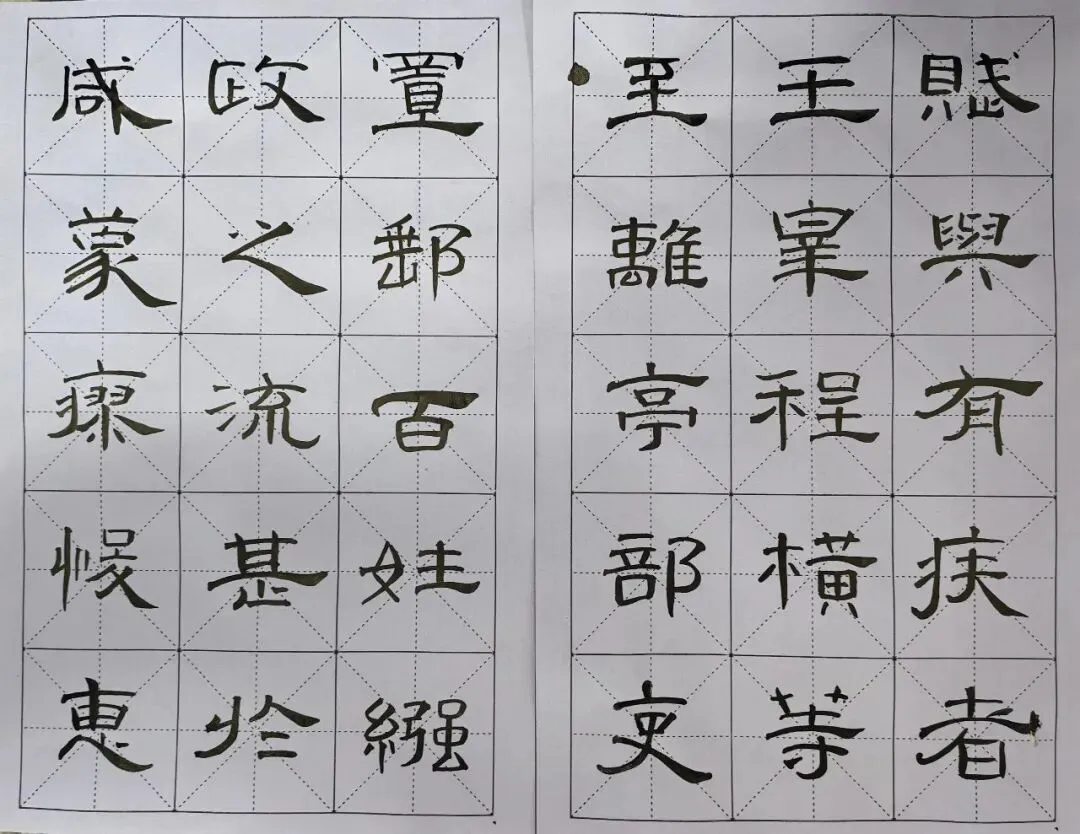 至離亭部吏
王皋程橫等
賦與有疾者
咸蒙瘳悛惠
政之流甚於
置郵百姓繦